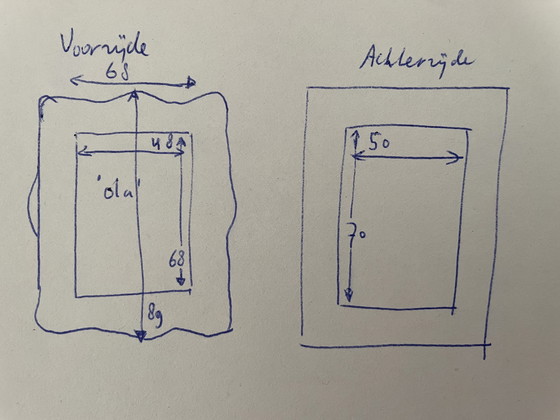 Voorzijde
68
48
'ola'
68
89
Achterzijde
50
70